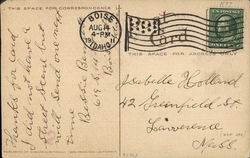 THIS SPACE FOR CORRESPONDENCE
BOISE
AUG 14
4-PM
IDAHO
THIS SPACE FOR ADDRESS ONLY
Thanks for card
I did not have a
Street Scene but
will send one next
time
Isabelle Holland
42 Greenfield St.
Lawrence
Mass.